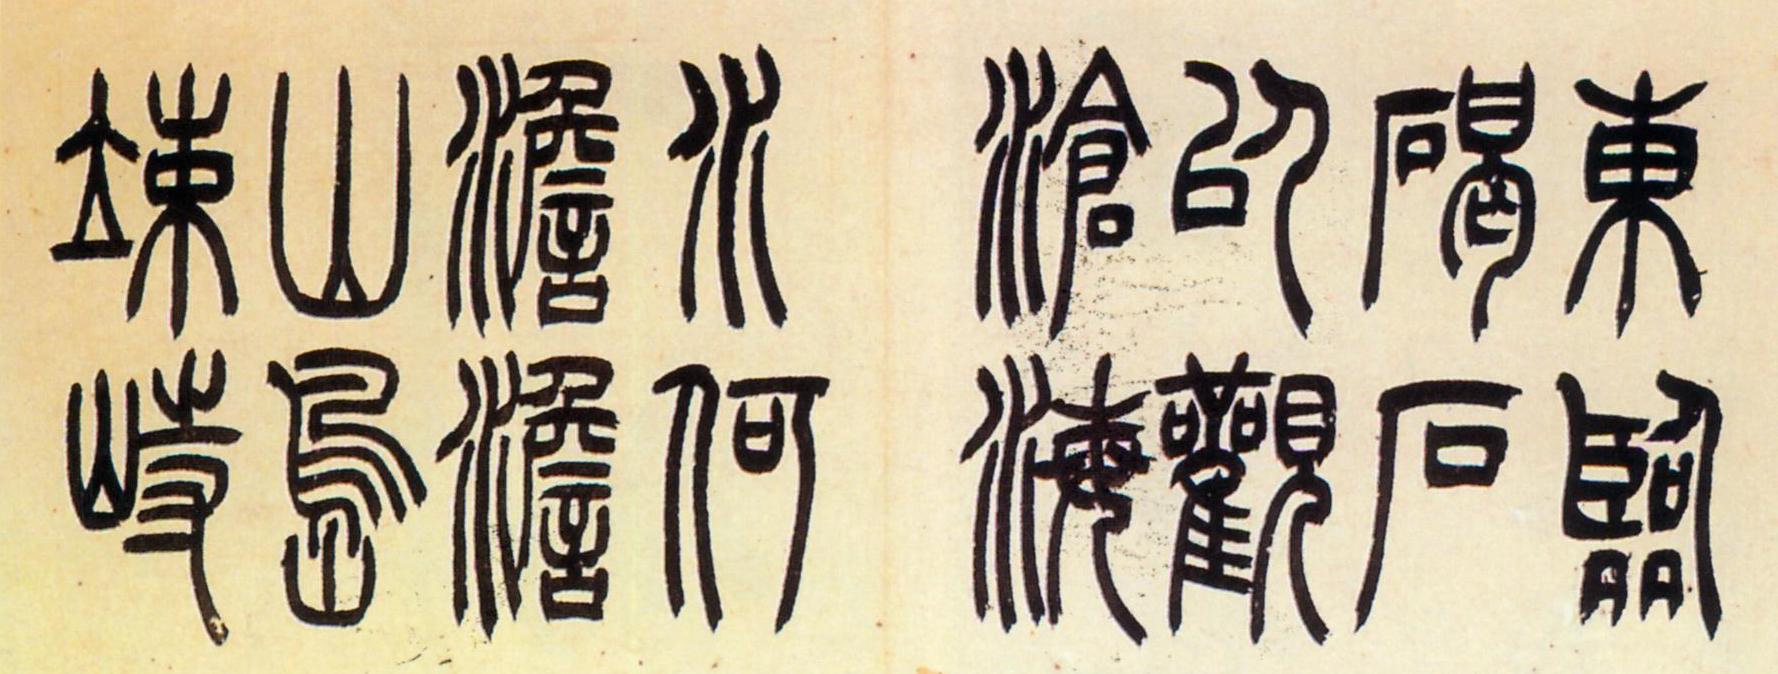 東臨
碣石
㠯觀
滄海
水何
澹澹
山島
竦峙